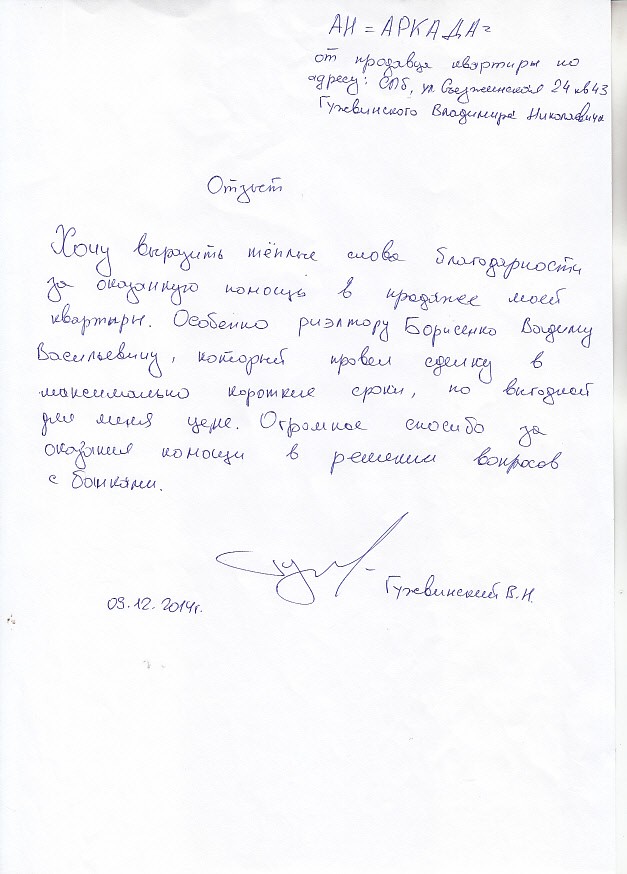 АН = АРКАДА =
от продавца квартиры по
адресу: СПб, ул Съезжинская 24 кв 43
Гужвинского Владимира Николаевича
Отзыв
Хочу выразить тёплые слова благодарности
за оказанную помощь в продаже моей
квартиры. Особенно риэлтору Борисенко Вадиму
Васильевичу, который провел сделку в
максимально короткие сроки, по выгодной
для меня цене. Огромное спасибо за
оказания помощи в решении вопросов
с банками.
Гужвинский В.Н.
09.12.2014г.